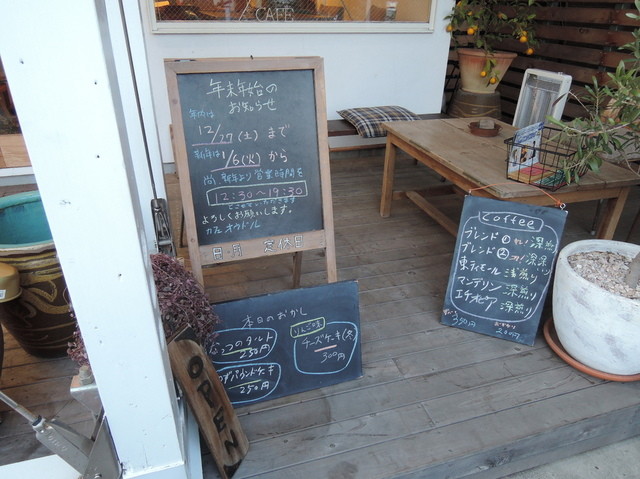 CAFE
年末年始の
お知らせ
年内は
12/27(土)まで
新年は1/6(火)から
尚、新年より営業時間を
12:30~19:30
とさせていただきます
よろしくお願いします。
カフェ オウドソル
日・月 定休日
本日のおかし
なっつのタルト
250円
りんご味
チーズケーキ(冬)
300円
ゆずパウンドケーキ
250円
OPEN
Coffee
ブレンド① 深煎
ブレンド② 深煎
東ティモール 浅煎り
マンデリン 深煎り
エチオピア 深煎り
350円
おかわり
200円